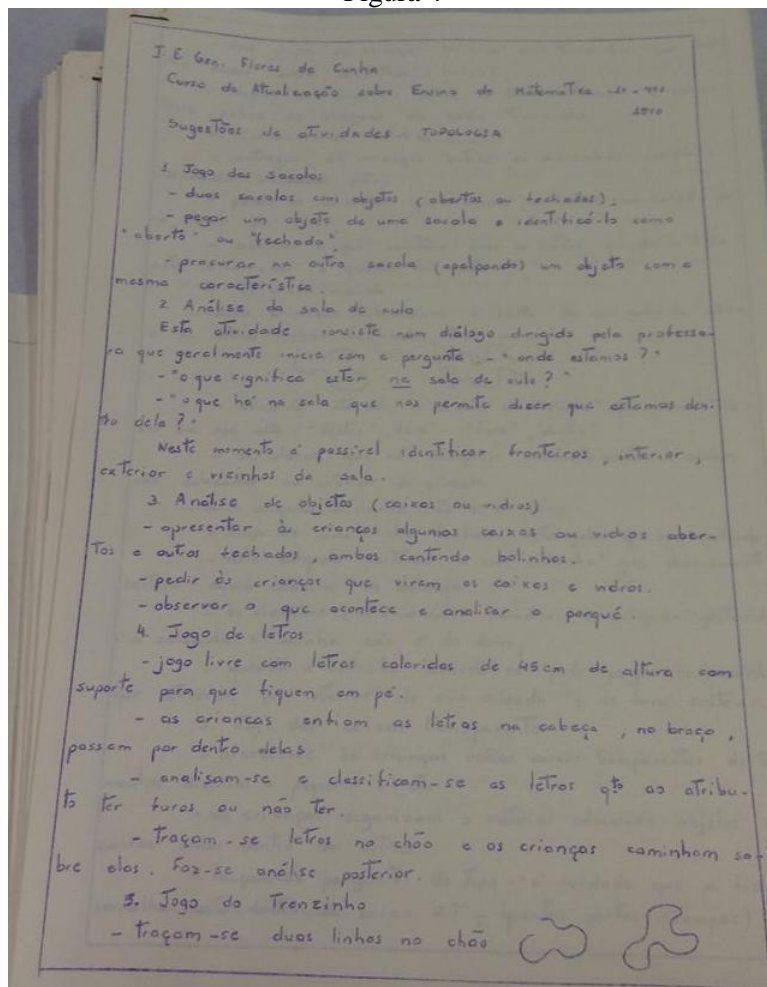 I. E. Gen. Flores da Cunha
Curso de Atualização sobre Ensino de Matemática
1970
Sugestões de atividades. TOPOLOGIA
1. Jogo das sacolas
- duas sacolas com objetos (abertos ou fechados);
- pegar um objeto de uma sacola e identificá-lo como
"aberto" ou "fechado".
- procurar na outra sacola (apalpando) um objeto com a
mesma característica.
2. Análise da sala de aula
Esta atividade consiste num diálogo dirigido pela professo-
ra que geralmente inicia com a pergunta: - "onde estamos?"
- "o que significa estar na sala de aula?"
- "o que há na sala que nos permite dizer que estamos den-
tro dela?"
Neste momento é possível identificar fronteiras, interior,
exterior e vizinhos da sala.
3. Análise de objetos (caixas ou vidros)
- apresentar às crianças algumas caixas ou vidros aber-
tos e outros fechados, ambos contendo bolinhas.
- pedir às crianças que virem as caixas e vidros.
- observar o que acontece e analisar o porquê
4. Jogo de letras
- jogo livre com letras coloridas de 45 cm de altura com
suporte para que fiquem em pé.
- as crianças enfiam as letras na cabeça, no braço,
passam por dentro delas
- analisam-se e classificam-se as letras qto ao atribu-
to ter furos ou não ter.
- traçam-se letras no chão e as crianças caminham so-
bre elas. Faz-se análise posterior.
5. Jogo do Trenzinho
- traçam-se duas linhas no chão